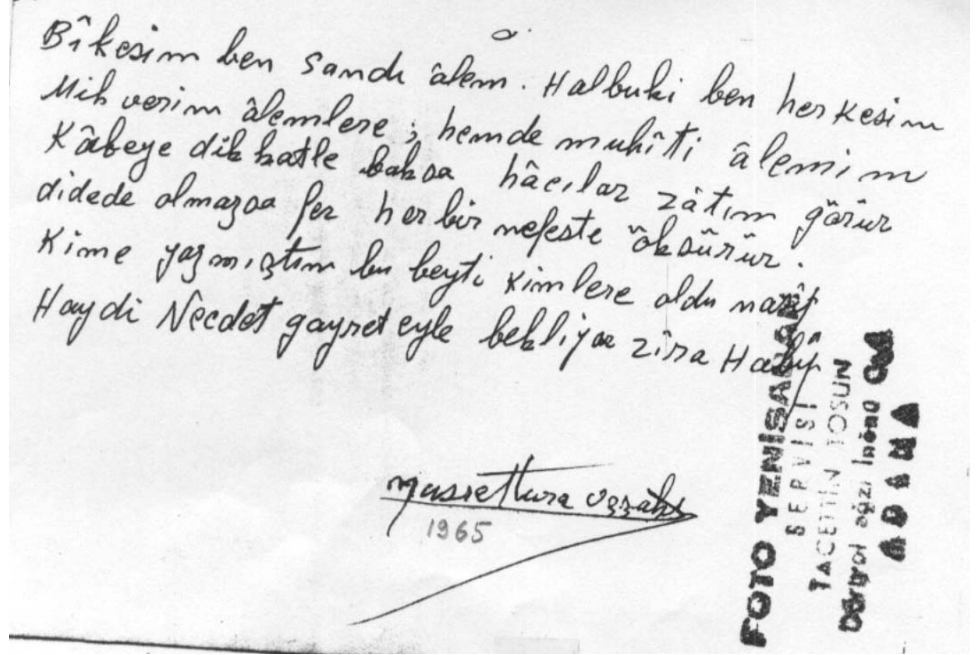 Bîkesim ben sandı âlem. Halbuki ben herkesim
Mih verim âlemlere; hemde muhîti âlemim
Kâbeye dikkatle baksa hâcılar zâtım görür
didede olmazsa fer her bir nefeste öksürür.
Kime yazmıştım bu beyti kimlere oldu nasîp
Haydi Necdet gayret eyle bekliyor zîra Habîp
1965
FOTO YENİSARAY
SERVİSİ
TACETTİN TOSUN
Dörtyol ağzı İnönü Cad.
ADANA